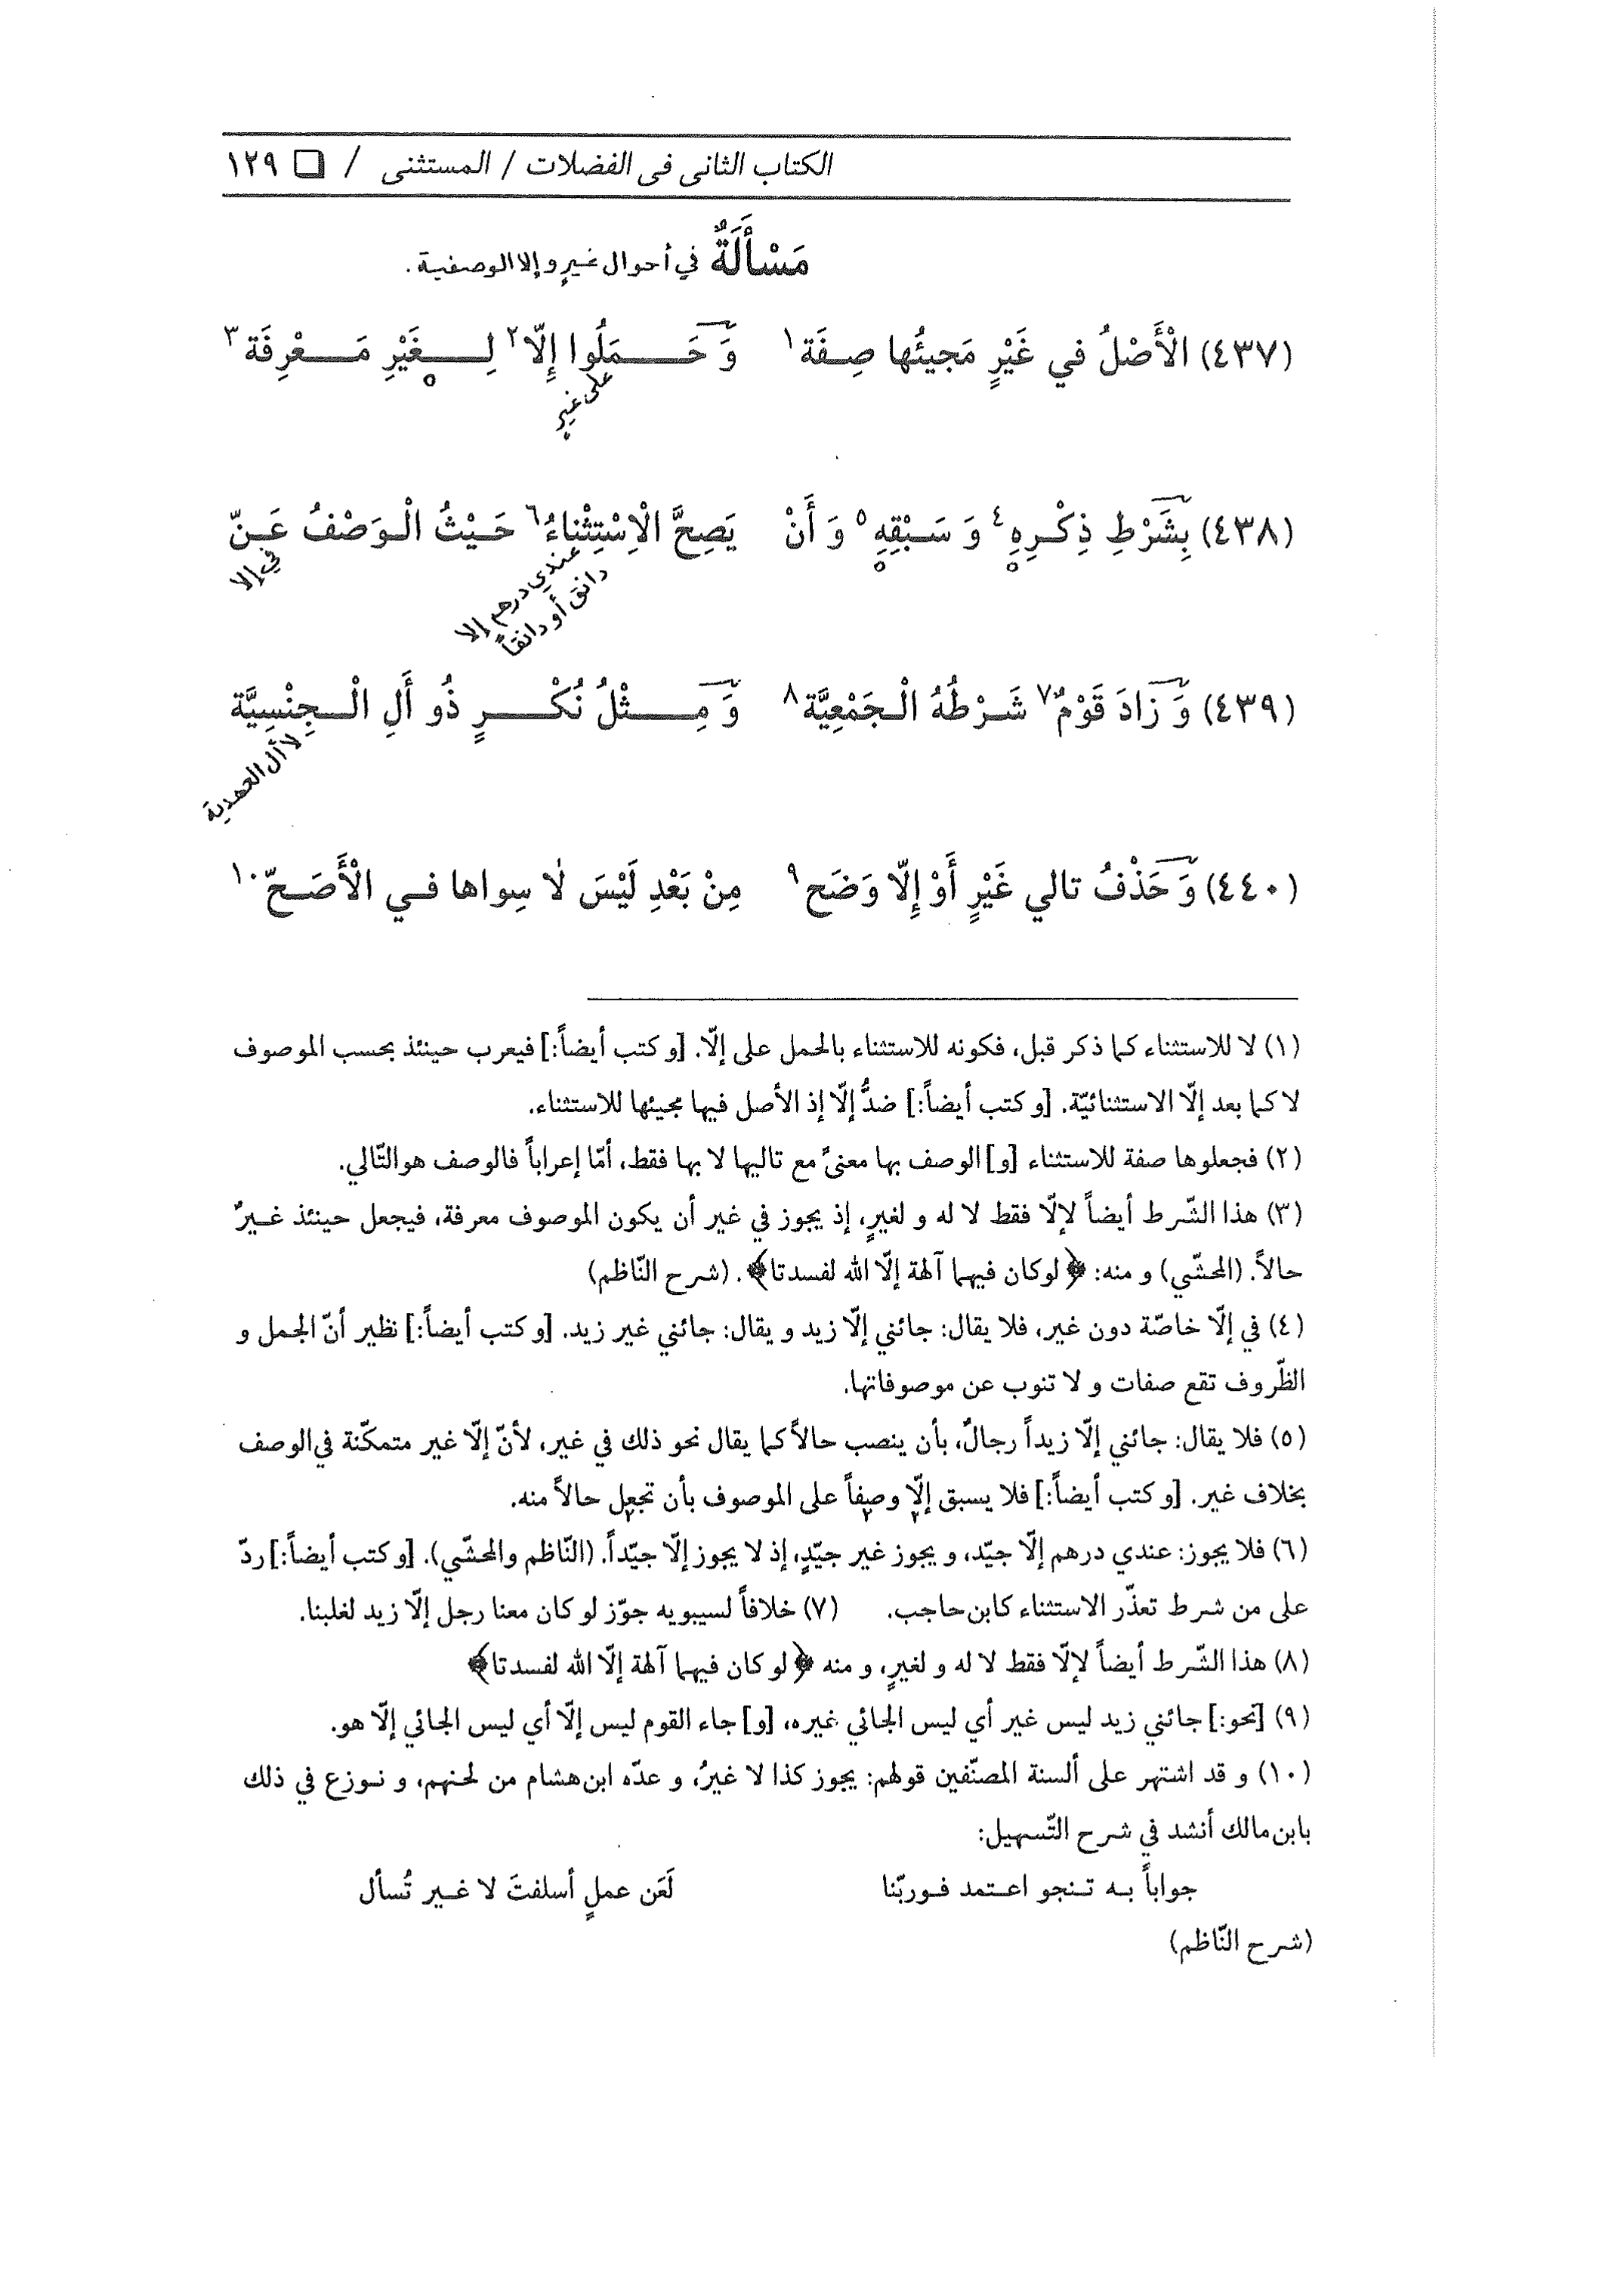 الكتاب الثانى فى الفضلات / المستثنى / □ ١٢٩
مَسْأَلَةٌ في أحوال غيرٍ و إلا الوصفية .
(٤٣٧) الْأَصْلُ في غَيْرٍ مَجيئُها صِفَة١ وَ حَمَلُوا إِلّا٢ لِغَيْرِ مَعْرِفَة٣
على غيرٍ
(٤٣٨) بِشَرْطِ ذِكْرِهِ٤ وَ سَبْقِهِ٥ وَ أَنْ يَصِحَّ الْاِسْتِثْناءُ٦ حَيْثُ الْوَصْفُ عَنّ
في إلا
عندي درهم إلا
دانق أو دانقاً
(٤٣٩) وَ زادَ قَوْمٌ٧ شَرْطُهُ الْجَمْعِيَّة٨ وَ مِثْلُ نُكْرٍ ذُو أَلِ الْجِنْسِيَّة
لا أل العهدية
(٤٤٠) وَ حَذْفُ تالي غَيْرٍ أَوْ إِلّا وَضَح٩ مِنْ بَعْدِ لَيْسَ لا سِواها في الْأَصَحّ١٠
(١) لا للاستثناء كما ذكر قبل، فكونه للاستثناء بالحمل على إلّا. [و كتب أيضاً:] فيعرب حينئذ بحسب الموصوف
لا كما بعد إلّا الاستثنائيّة. [و كتب أيضاً:] ضدُّ إلّا إذ الأصل فيها مجيئها للاستثناء.
(٢) فجعلوها صفة للاستثناء [و] الوصف بها معنىً مع تاليها لا بها فقط، أمّا إعراباً فالوصف هو التّالي.
(٣) هذا الشّرط أيضاً لإلّا فقط لا له و لغيرٍ، إذ يجوز في غير أن يكون الموصوف معرفة، فيجعل حينئذ غيرٌ
حالاً. (المحشّي) و منه: ﴿لوكان فيهما آلهة إلّا الله لفسدتا﴾. (شرح النّاظم)
(٤) في إلّا خاصّة دون غير، فلا يقال: جائني إلّا زيد و يقال: جائني غير زيد. [و كتب أيضاً:] نظير أنّ الجمل و
الظّروف تقع صفات و لا تنوب عن موصوفاتها.
(٥) فلا يقال: جائني إلّا زيداً رجالٌ، بأن ينصب حالاً كما يقال نحو ذلك في غير، لأنّ إلّا غير متمكّنة في الوصف
بخلاف غير. [و كتب أيضاً:] فلا يسبق إلّا وصفاً على الموصوف بأن تجعل حالاً منه.
(٦) فلا يجوز: عندي درهم إلّا جيّد، و يجوز غير جيّدٍ، إذ لا يجوز إلّا جيّداً. (النّاظم والمحشّي). [و كتب أيضاً:] ردّ
على من شرط تعذّر الاستثناء كابن حاجب. (٧) خلافاً لسيبويه جوّز لو كان معنا رجل إلّا زيد لغلبنا.
(٨) هذا الشّرط أيضاً لإلّا فقط لا له و لغيرٍ، و منه ﴿لو كان فيهما آلهة إلّا الله لفسدتا﴾
(٩) [نحو:] جائني زيد ليس غير أي ليس الجائي غيره، [و] جاء القوم ليس إلّا أي ليس الجائي إلّا هو.
(١٠) و قد اشتهر على ألسنة المصنّفين قولهم: يجوز كذا لا غيرُ، و عدّه ابن هشام من لحنهم، و نوزع في ذلك
بابن مالك أنشد في شرح التّسهيل:
جواباً به تنجو اعتمد فوربّنا لَعَن عملٍ أسلفتَ لا غير تُسأل
(شرح النّاظم)